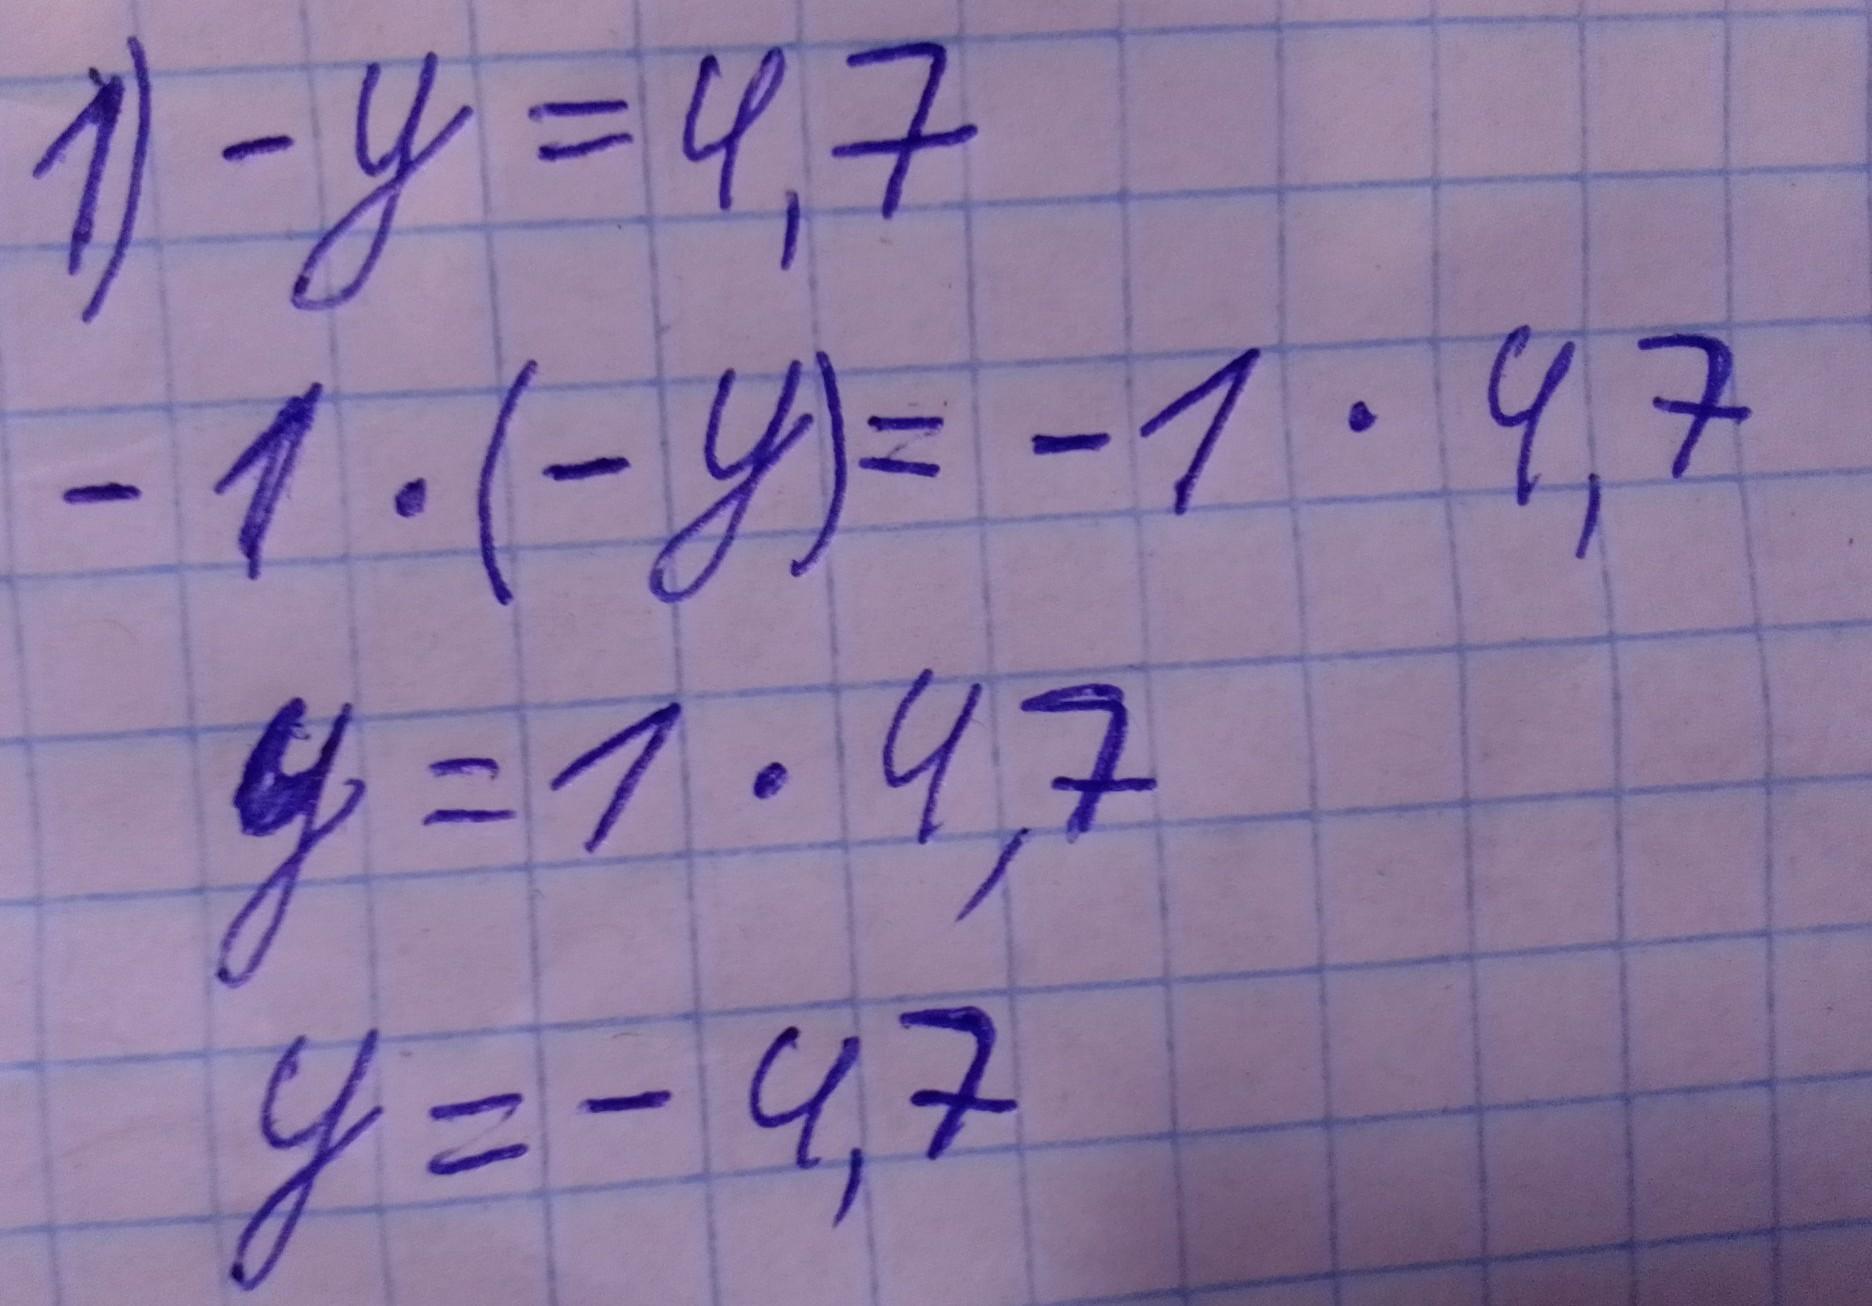 1) - y = 4,7
- 1 · (- y) = - 1 · 4,7
y = 1 · 4,7
y = - 4,7